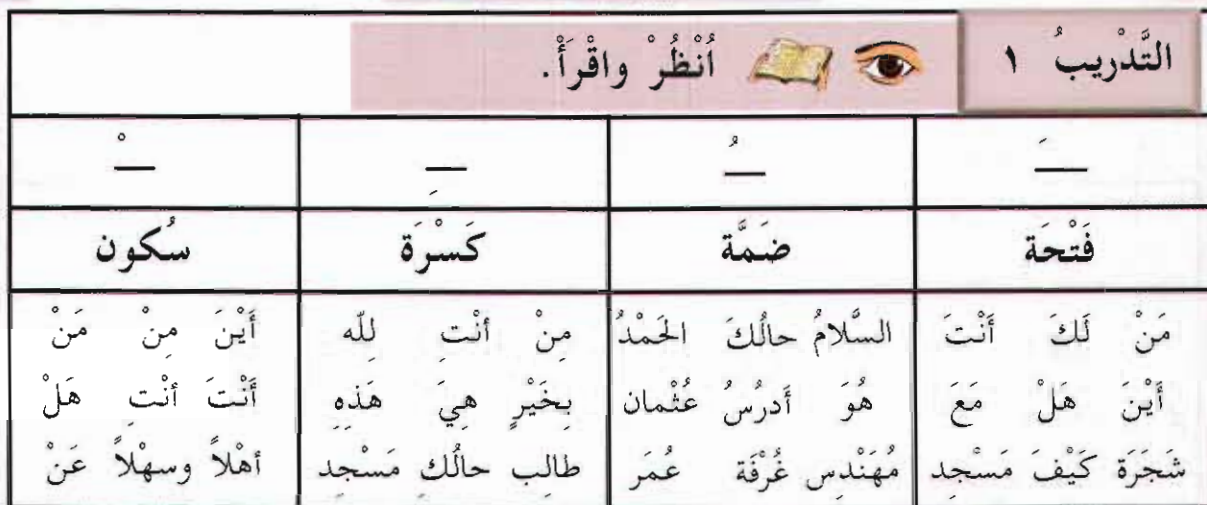 التَّدْرِيبُ ١ اُنْظُرْ واقْرَأْ.
ـَ ـُ ـِ ـْ
فَتْحَة ضَمَّة كَسْرَة سُكون
مَنْ لَكَ أَنْتَ السَّلامُ حالُكَ الحَمْدُ مِنْ أنْتِ لِلّه أَيْنَ مِنْ مَنْ
أَيْنَ هَلْ مَعَ هُوَ أَدرُسُ عُثْمان بِخَيْرٍ هِيَ هَذِهِ أَنْتَ أنْتِ هَلْ
شَجَرَة كَيْفَ مَسْجِد مُهَنْدِس غُرْفَة عُمَر طالِب حالُكِ مَسْجِد أهْلاً وسهْلاً عَنْ